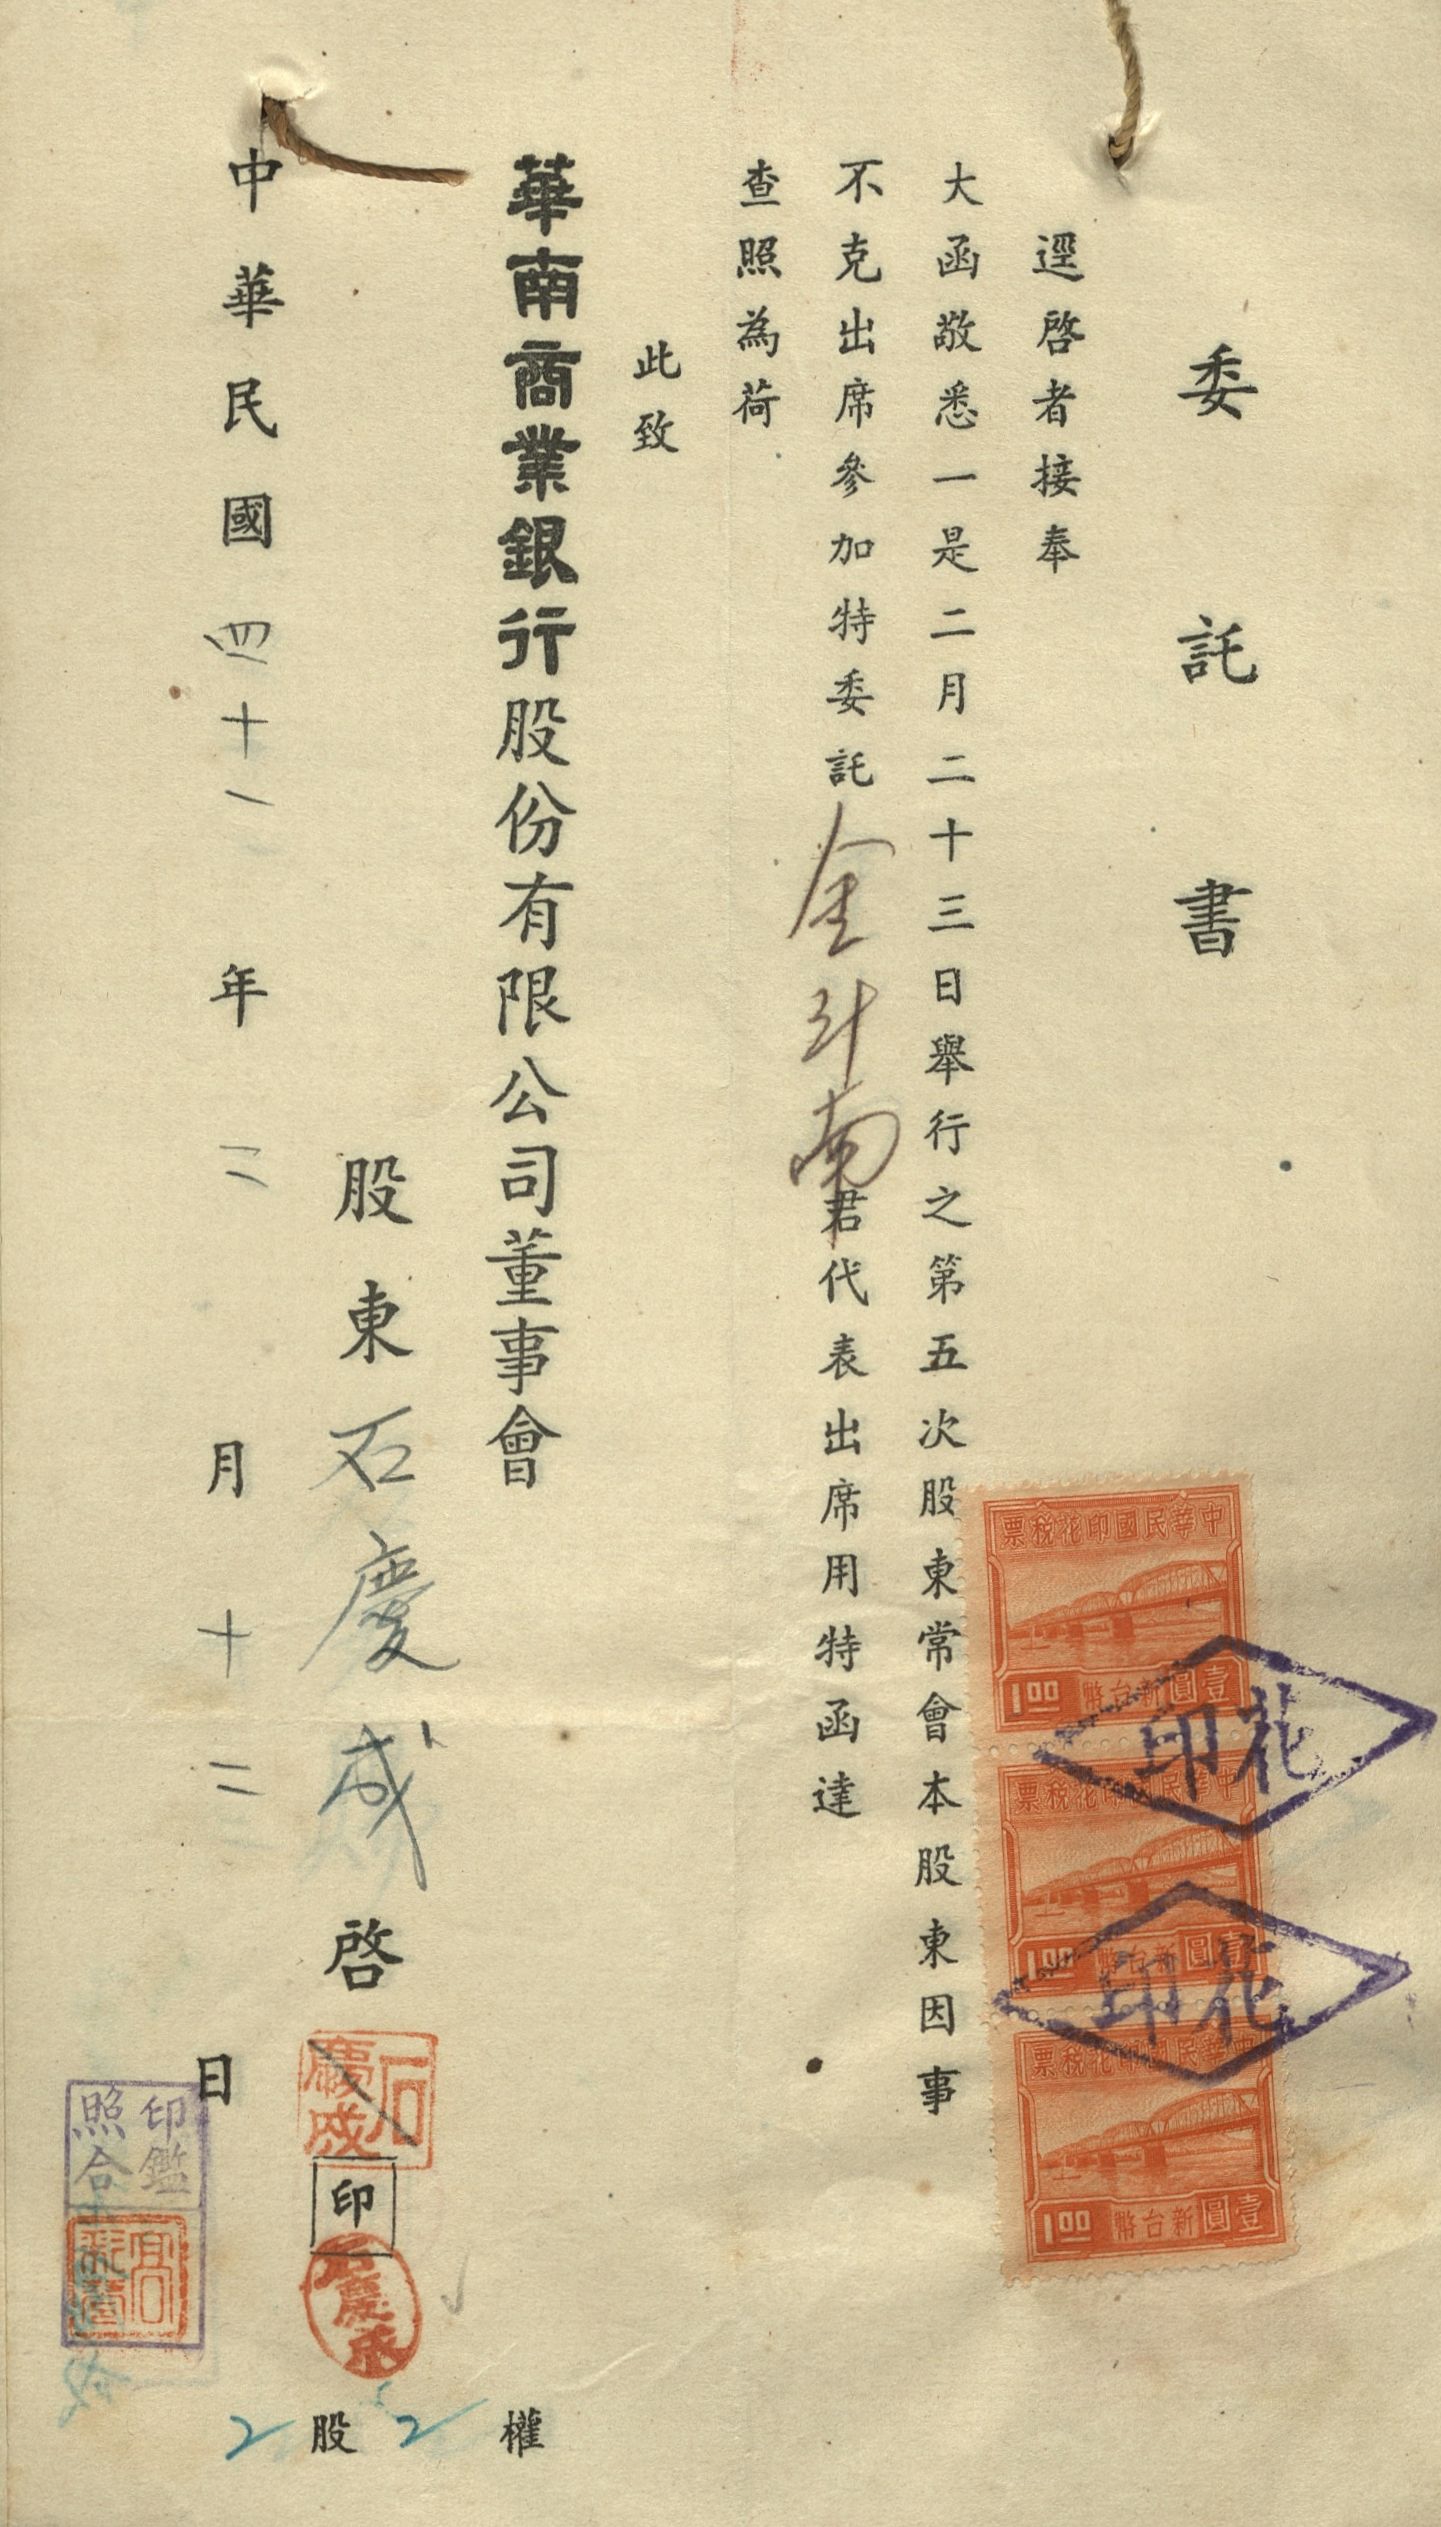 委託書
逕啓者接奉
大函敬悉一是二月二十三日舉行之第五次股東常會本股東因事
不克出席參加特委託金斗南君代表出席用特函達
查照為荷
此致
華南商業銀行股份有限公司董事會
股東石慶成啓
石慶成
印
中華民國四十一年二月十二日
2股2權
印鑑照合
中華民國印花稅票
新台幣壹圓
1.00
中華民國印花稅票
新台幣壹圓
1.00
中華民國印花稅票
新台幣壹圓
1.00
印花
印花